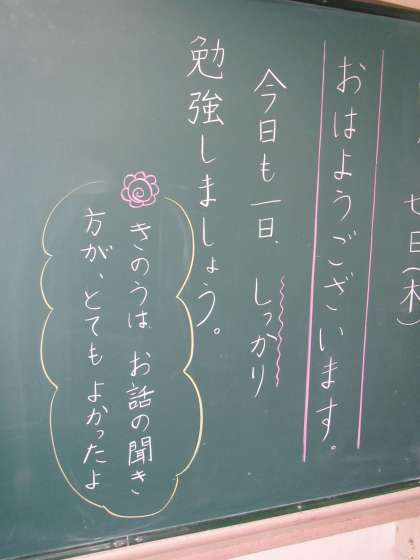 七日(木)
おはようございます。
今日も一日、しっかり
勉強しましょう。
きのうは、お話の聞き
方が、とても よかったよ